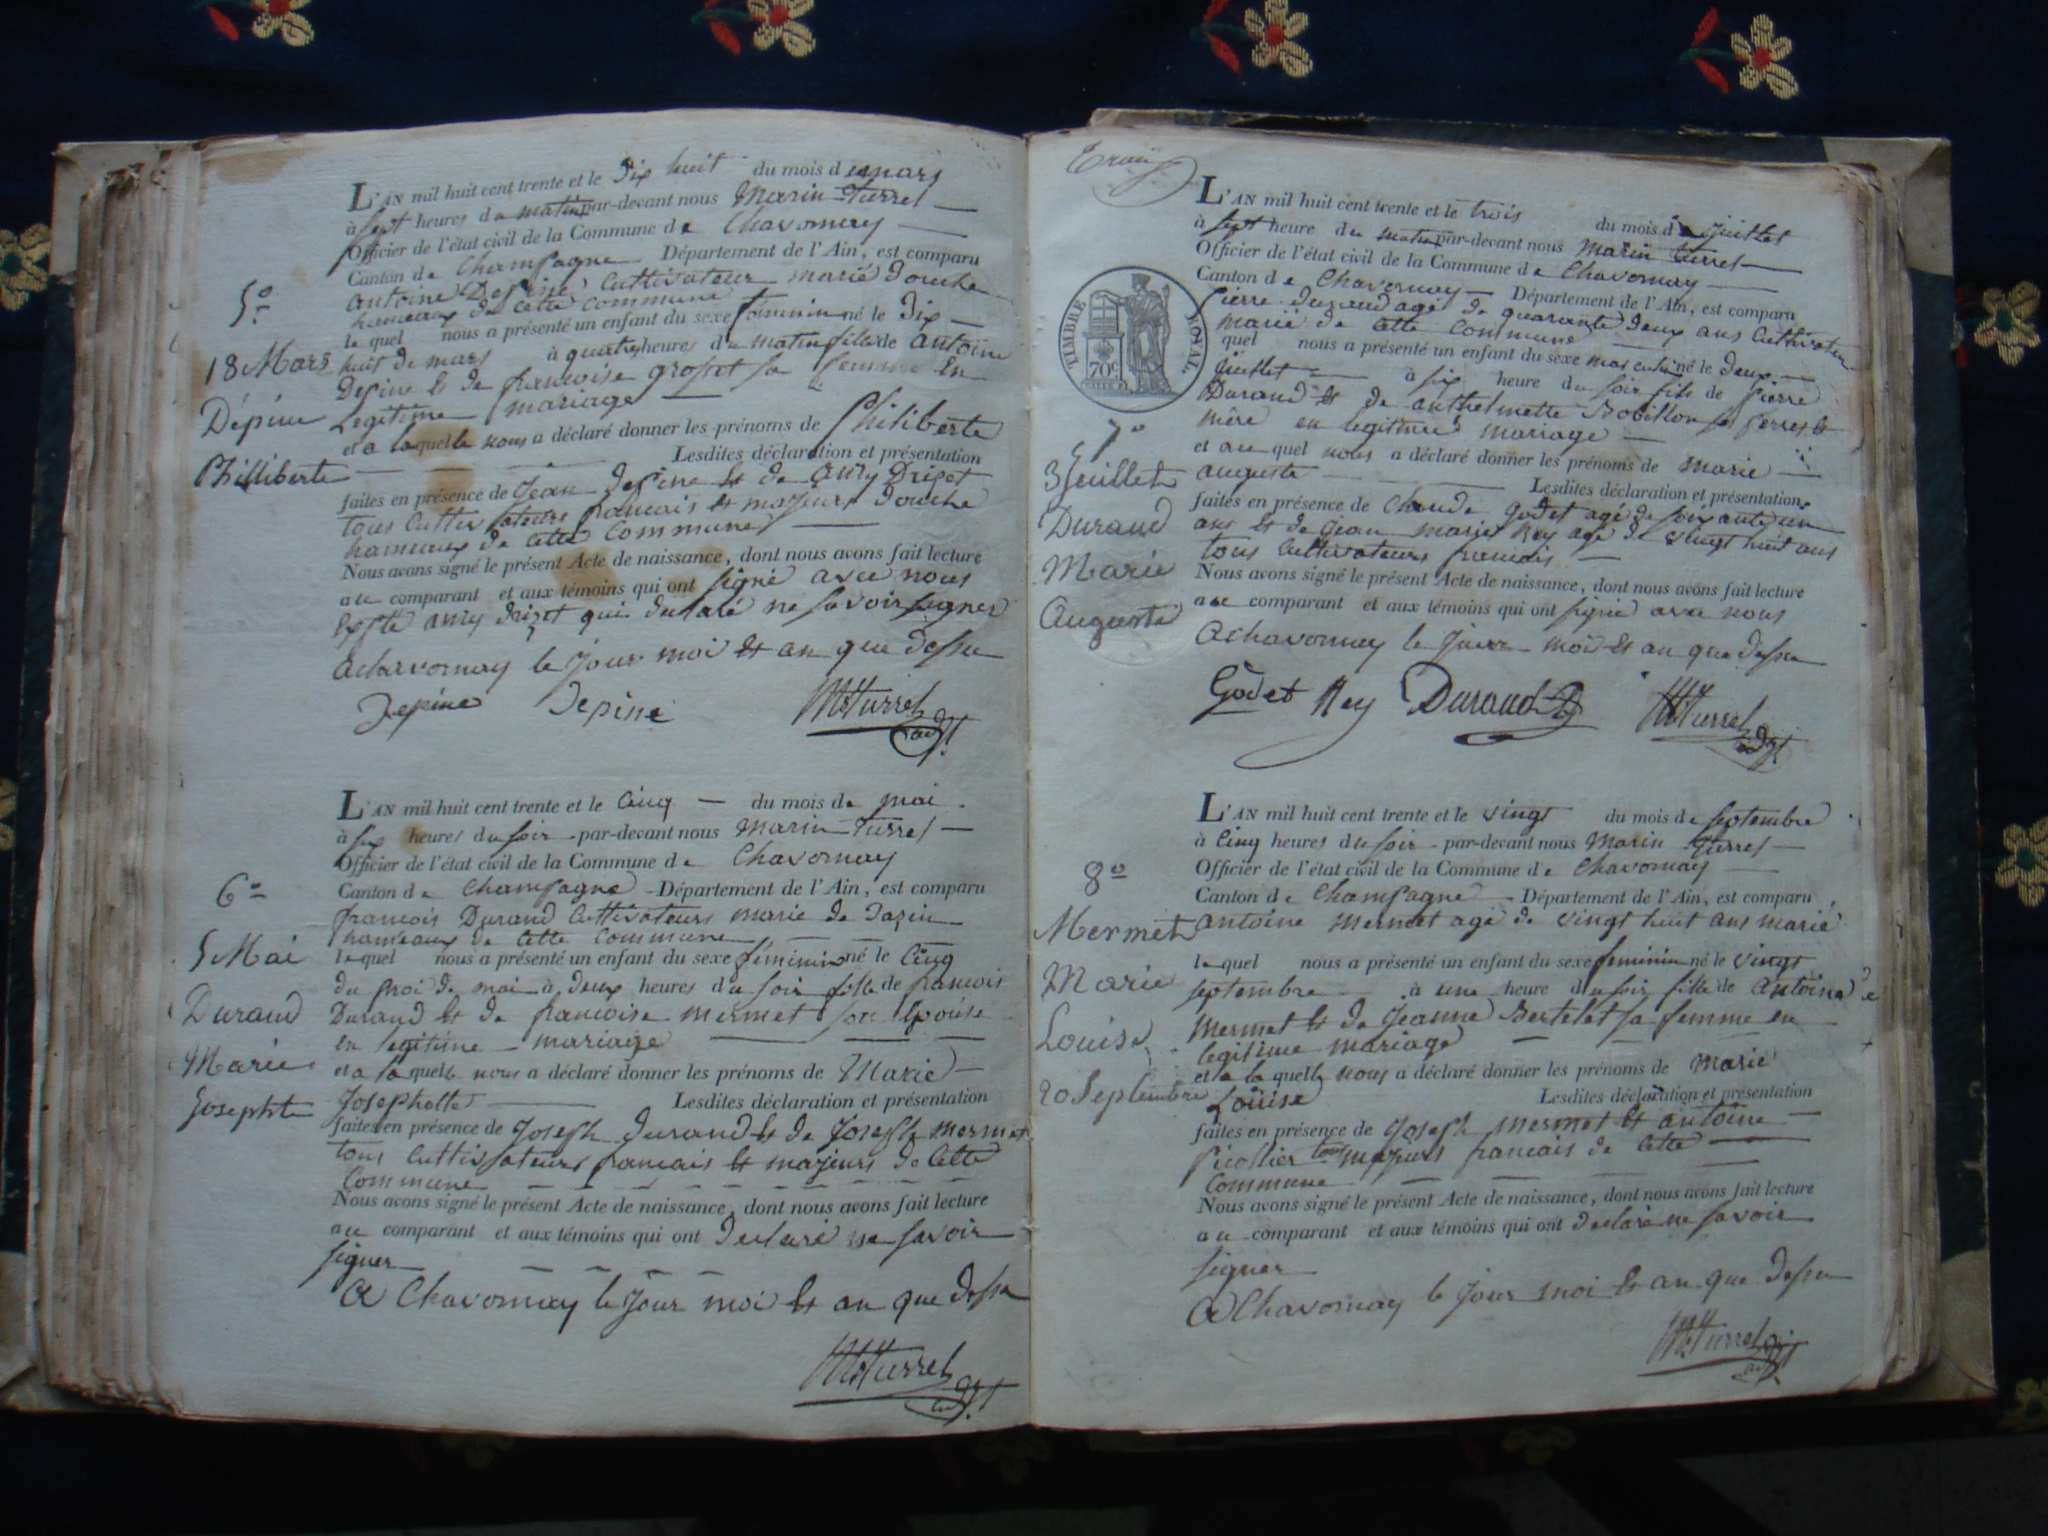 L'AN mil huit cent trente et le Dix huit du mois de mars
à sept heures du matin par-devant nous Marin Turrel
Officier de l'état civil de la Commune de Chavornay
Canton de Champagne Département de l'Ain, est comparu
antoine Depine Cultivateur marié Douche
hameaux de cette commune
5°
le quel nous a présenté un enfant du sexe feminin né le Dix
18 Mars
huit de mars à quatre heures du matin fille de antoine
Depine et de francoise grosset sa femme en
Dépine
Legitime mariage
et a laquelle nous a déclaré donner les prénoms de Philiberte
Philliberte
Lesdites déclaration et présentation
faites en présence de Jean Depine et de Drizet
tous Cultivateurs francais et majeurs Douche
hameaux de cette Commune
Nous avons signé le présent Acte de naissance, dont nous avons fait lecture
au comparant et aux témoins qui ont signé avec nous
drizet qui declaré ne savoir signer
achavornay le Jour moi et an que dessu
Depine Depine M Turrel adjt
L'AN mil huit cent trente et le Cinq du mois de mai
à six heures du soir par-devant nous Marin Turrel
Officier de l'état civil de la Commune de Chavornay
6°
Canton de Champagne Département de l'Ain, est comparu
francois Durand Cultivateurs marié de Dazin
hameaux de cette commune
5 Mai
le quel nous a présenté un enfant du sexe féminin né le Cinq
du moi de mai à deux heures du soir fille de francois
Durand
Durand et de francoise mermet son Epouse
en legitime mariage
Marie
et a la quelle nous a déclaré donner les prénoms de Marie
Josephte
Josephette Lesdites déclaration et présentation
faites en présence de Joseph durand et de Joseph mermet
tous Cultivateurs francais et majeurs de Cette
Commune
Nous avons signé le présent Acte de naissance, dont nous avons fait lecture
au comparant et aux témoins qui ont declaré ne savoir
signer
A Chavornay le Jour moi et an que dessu
M Turrel adjt
L'AN mil huit cent trente et le trois du mois de Juillet
à sept heure du matin par-devant nous Marin Turrel
Officier de l'état civil de la Commune de Chavornay
Canton de Chavornay Département de l'Ain, est comparu
Pierre durand agé de quarante deux ans Cultivateur
marié de cette commune
TIMBRE ROYAL
70 C
quel nous a présenté un enfant du sexe masculin né le Deux
Juillet à six heure du soir fils de Pierre
Durand et de anthelmette Bobillon ses perres et
mère en legitime mariage
7°
et au quel nous a déclaré donner les prénoms de marie
3 Juillet
auguste Lesdites déclaration et présentation
faites en présence de Claude godet agé de soixante un
Durand
ans et de Jean marie Rey agé de vingt huit ans
tous Cultivateurs francais
Marie
Nous avons signé le présent Acte de naissance, dont nous avons fait lecture
au comparant et aux témoins qui ont signé avec nous
Auguste
Achavornay le Jour moi et an que dessu
Godet Rey Durand M Turrel adjt
L'AN mil huit cent trente et le vingt du mois de septembre
à Cinq heures du soir par-devant nous Marin Turrel
Officier de l'état civil de la Commune de Chavornay
8°
Canton de Champagne Département de l'Ain, est comparu
Mermet
antoine mermet agé de vingt huit ans marié
le quel nous a présenté un enfant du sexe feminin né le vingt
Marie
septembre à une heure du soir fille de antoine
mermet et de Jeanne Bertelet sa femme en
Louise
legitime mariage
et a la quelle nous a déclaré donner les prénoms de marie
20 Septembre
Louise Lesdites déclaration et présentation
faites en présence de Joseph mermet et antoine
Picollier tous majeurs francais de Cette
Commune
Nous avons signé le présent Acte de naissance, dont nous avons fait lecture
au comparant et aux témoins qui ont declaré ne savoir
signer
A Chavornay le Jour moi et an que dessu
M Turrel adjt